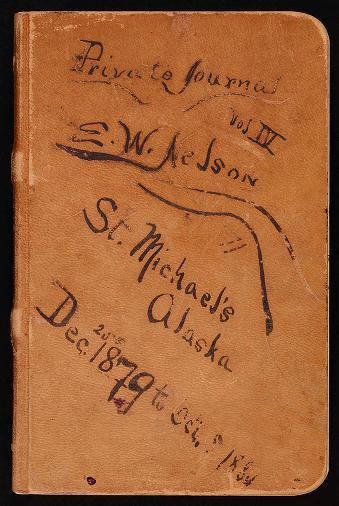 Private Journal
Vol IV
E. W. Nelson
St. Michael's
Alaska
Dec. 1879 to Oct.